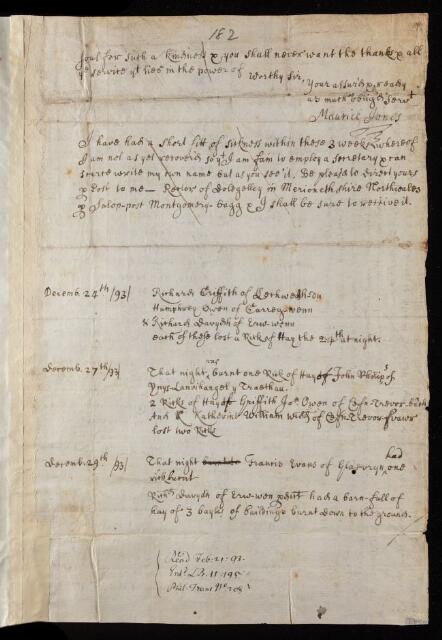 182
soul for such a kindness & you shall never want the thanks & all
ye service yt lies in the power of Worthy Sir,
Your assured, ready
as much oblig'd servt
Maurice Jones
I have had a short fitt of sickness within these 3 weeks, whereof
I am not as yet recoverd soy I am fain to employ a secretary & can
scarce write my own name but as you see it. Be pleasd to direct yours
p Post to me — Rector of Dolegelley in Merioneth shire Northwales
p Salop-post Montgomery-bagg & I shall be sure to receive it.
Decemb. 24th /93/
Richard Griffith of
Humphrey Owen of Carreg-wenn
& Richard Davydh of Erw-wenn
each of these lost a Rick of Hay the 24th at night.
Decemb. 27th 93/
That night was burnt one Rick of Hay of John Philips of
Ynys-Lanvihangel y Traethau.
2 Ricks of Hay of Griffith Jos Owen of Cefn-Trevor-
And Katherine William Widw of Cefn-Trevor-
lost two Ricks
Decemb. 29th /93/
That night Francis Evans of had one
rick burnt
Richd Davydh of Erw-wen had a barn-full of
hay of 3 bayes of building burnt down to the ground.
Read Feb. 21. 93.
Entd LB. 11. 195
Phil. Trans No 208